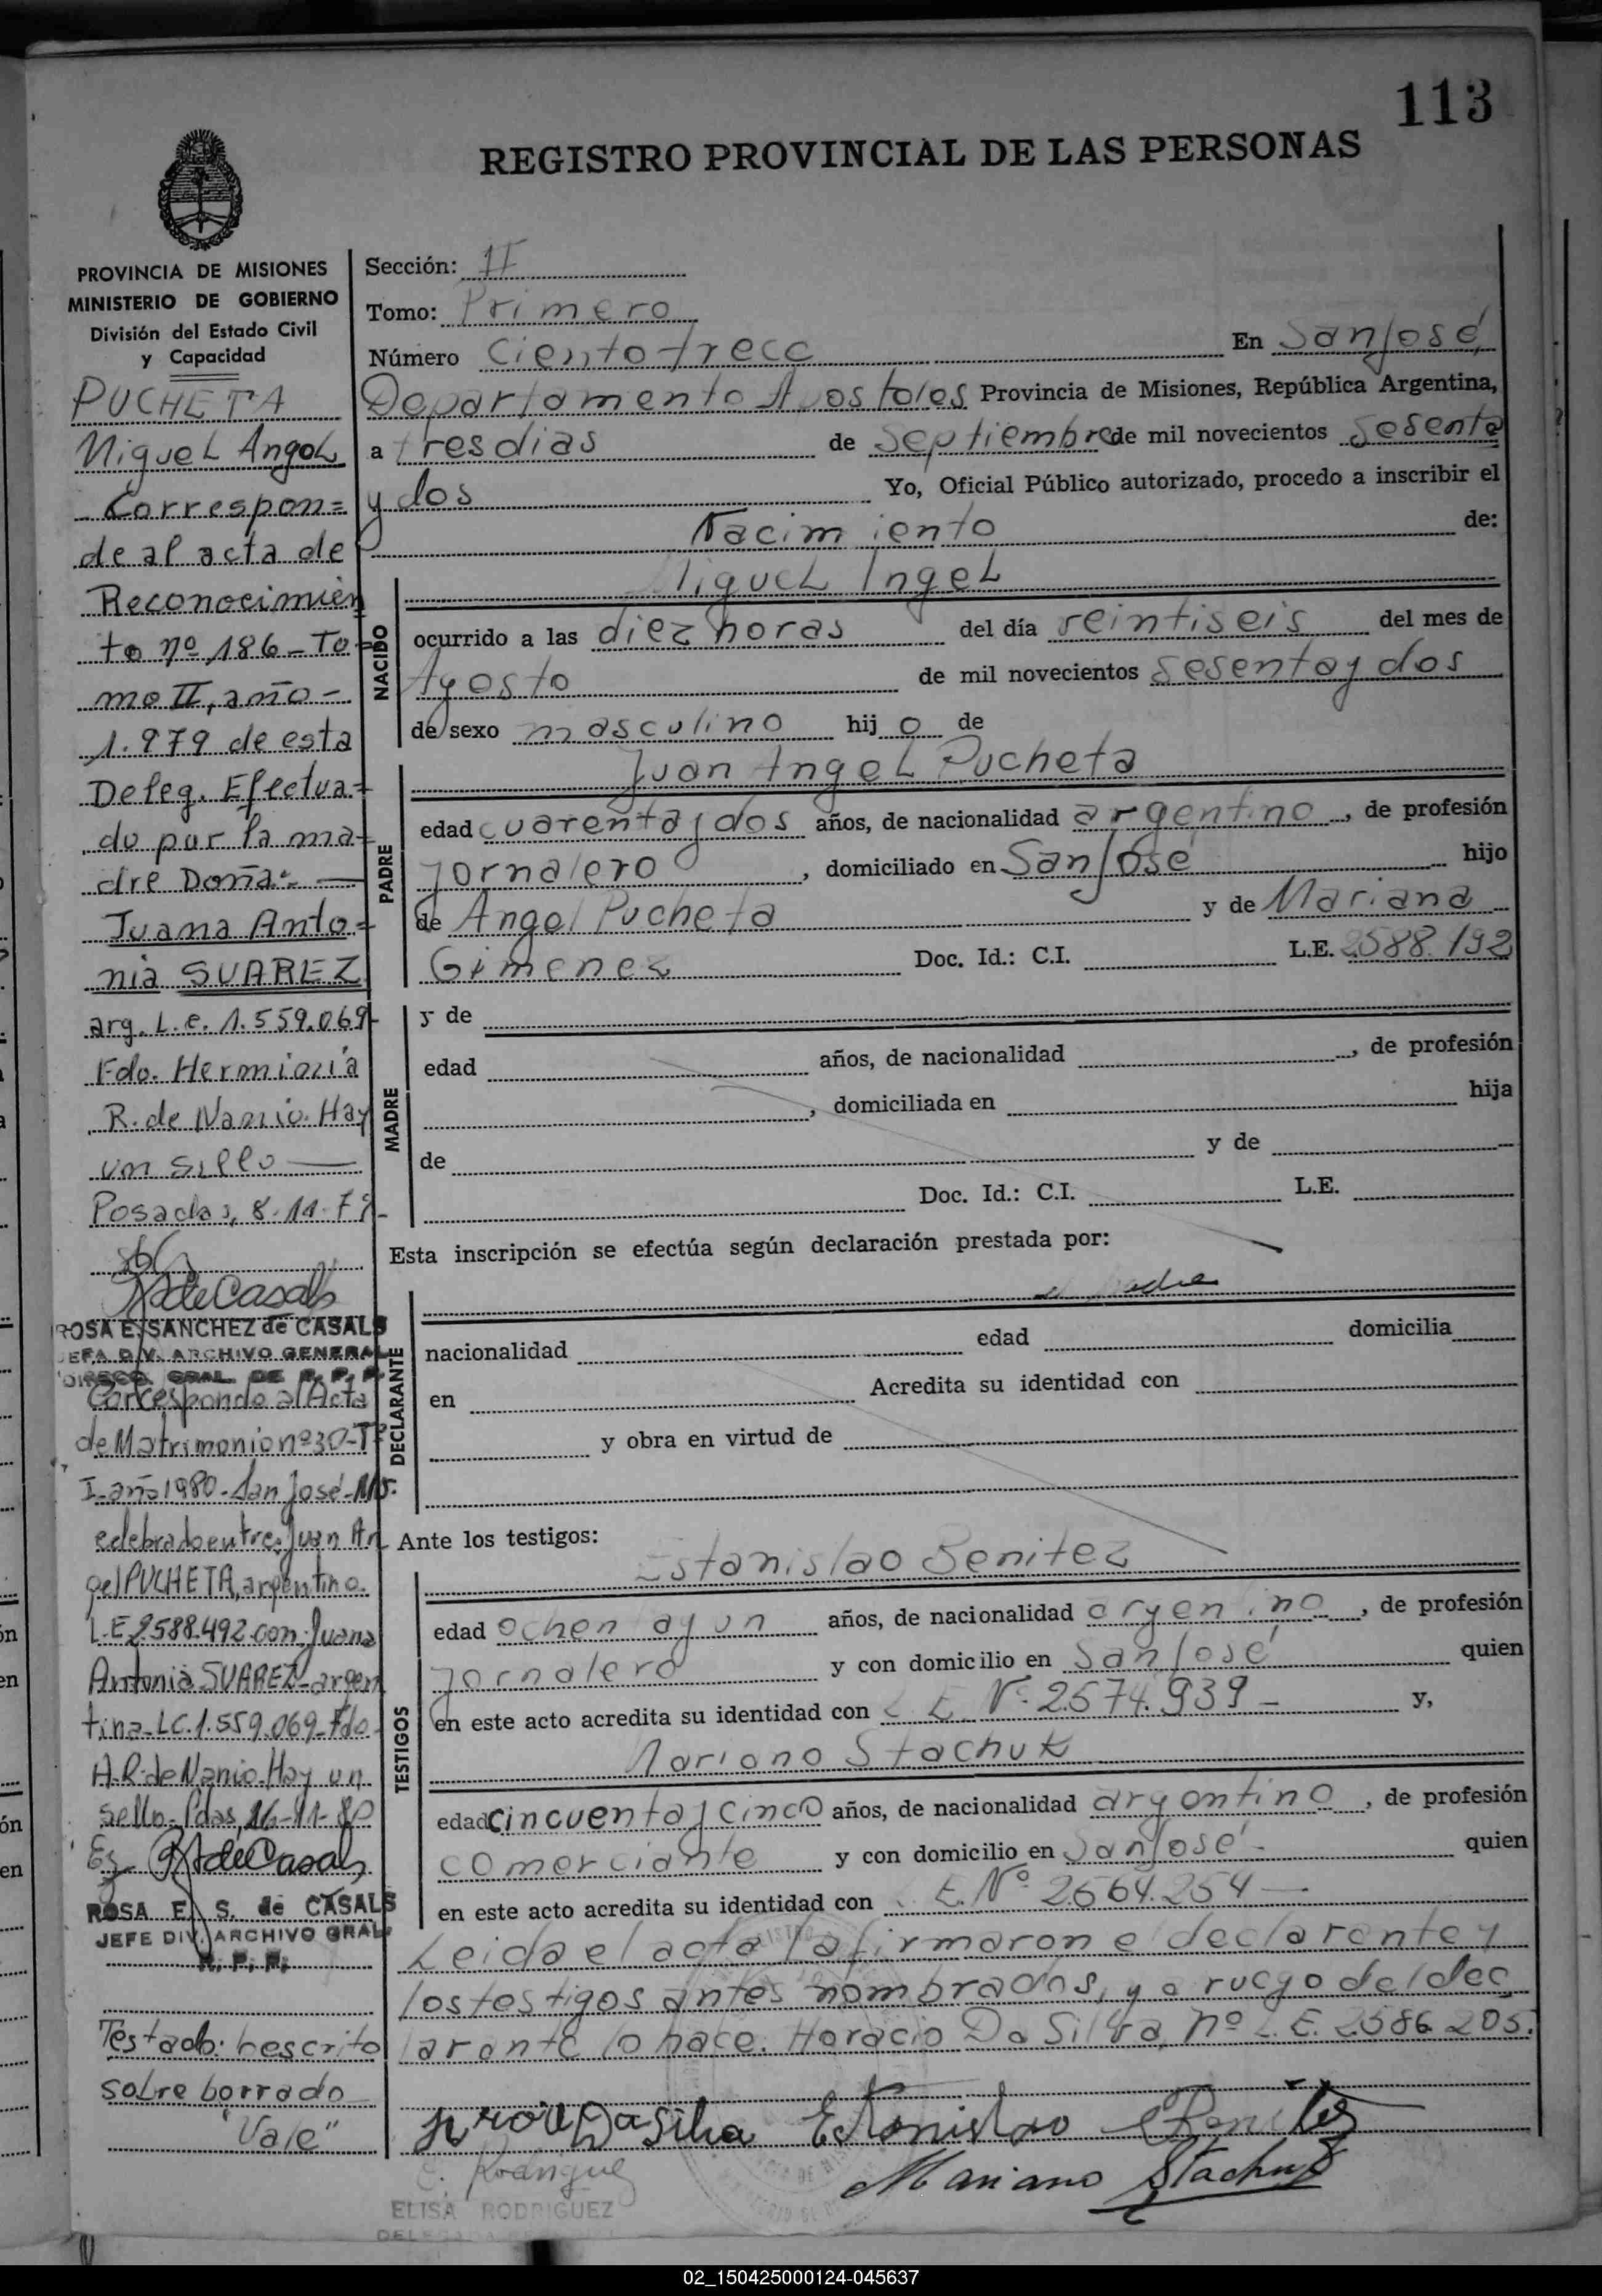 113
REGISTRO PROVINCIAL DE LAS PERSONAS
PROVINCIA DE MISIONES
MINISTERIO DE GOBIERNO
División del Estado Civil
y Capacidad
PUCHETA
Miguel Angel
Correspon=
de al acta de
Reconocimien
to nº 186 - To=
mo II, año -
1.979 de esta
Deleg. Efectua=
do por la ma=
dre Doña:
Juana Anto=
nia SUAREZ
arg. L.e. 1.559.069-
Fdo. Herminia
R. de Nannio. Hay
un sello
Posadas, 8-11-79-
RdeCasals
ROSA E. SANCHEZ de CASALS
JEFA DIV. ARCHIVO GENERAL
DIRECC. GRAL. DE R. P. P.
Corresponde al Acta
de Matrimonio nº 30-Tº
I-año 1980-San José-Mis.
celebrado entre: Juan An
gel PUCHETA, argentino.
L.E 2.588.492 con: Juana
Antonia SUAREZ-argen
tina-LC.1.559.069-Fdo.
H.R. de Nanio. Hay un
sello-Pdas, 16-11-80
RdeCasals
ROSA E. S. de CASALS
JEFE DIV. ARCHIVO GRAL.
R. P. P.
Testado: bescrito
sobre borrado
"Vale"
Sección: II
Tomo: Primero
Número Ciento trece En San José,
Departamento Apostoles Provincia de Misiones, República Argentina,
a tres dias de Septiembre de mil novecientos Sesenta
y dos Yo, Oficial Público autorizado, procedo a inscribir el
Nacimiento de:
NACIDO
Miguel Angel
ocurrido a las diez horas del día veintiseis del mes de
Agosto de mil novecientos Sesenta y dos
de sexo masculino hijo de
PADRE
Juan Angel Pucheta
edad cuarenta y dos años, de nacionalidad argentino, de profesión
jornalero, domiciliado en San José hijo
de Angel Pucheta y de Mariana
Gimenez Doc. Id.: C.I. L.E. 2588.192
MADRE
y de
edad años, de nacionalidad , de profesión
, domiciliada en hija
de y de
Doc. Id.: C.I. L.E.
Esta inscripción se efectúa según declaración prestada por:
el padre
DECLARANTE
nacionalidad edad domicilia
en Acredita su identidad con
y obra en virtud de
Ante los testigos:
TESTIGOS
Estanislao Benitez
edad ochenta y un años, de nacionalidad argentino, de profesión
jornalero y con domicilio en San José quien
en este acto acredita su identidad con L.E. Nº 2.574.939 - y,
Mariano Stachuk
edad cincuenta y cinco años, de nacionalidad argentino, de profesión
comerciante y con domicilio en San José - quien
en este acto acredita su identidad con L.E. Nº 2.564.254 -
Leida el acta la firmaron el declarante y
los testigos antes nombrados, y a ruego del dec
larante lo hace. Horacio Da Silva, nº L.E. 2.586.205.
Da Silva Estanislao Benitez
Mariano Stachuk
E. Rodriguez
ELISA RODRIGUEZ
DELEGADA
02_150425000124-045637